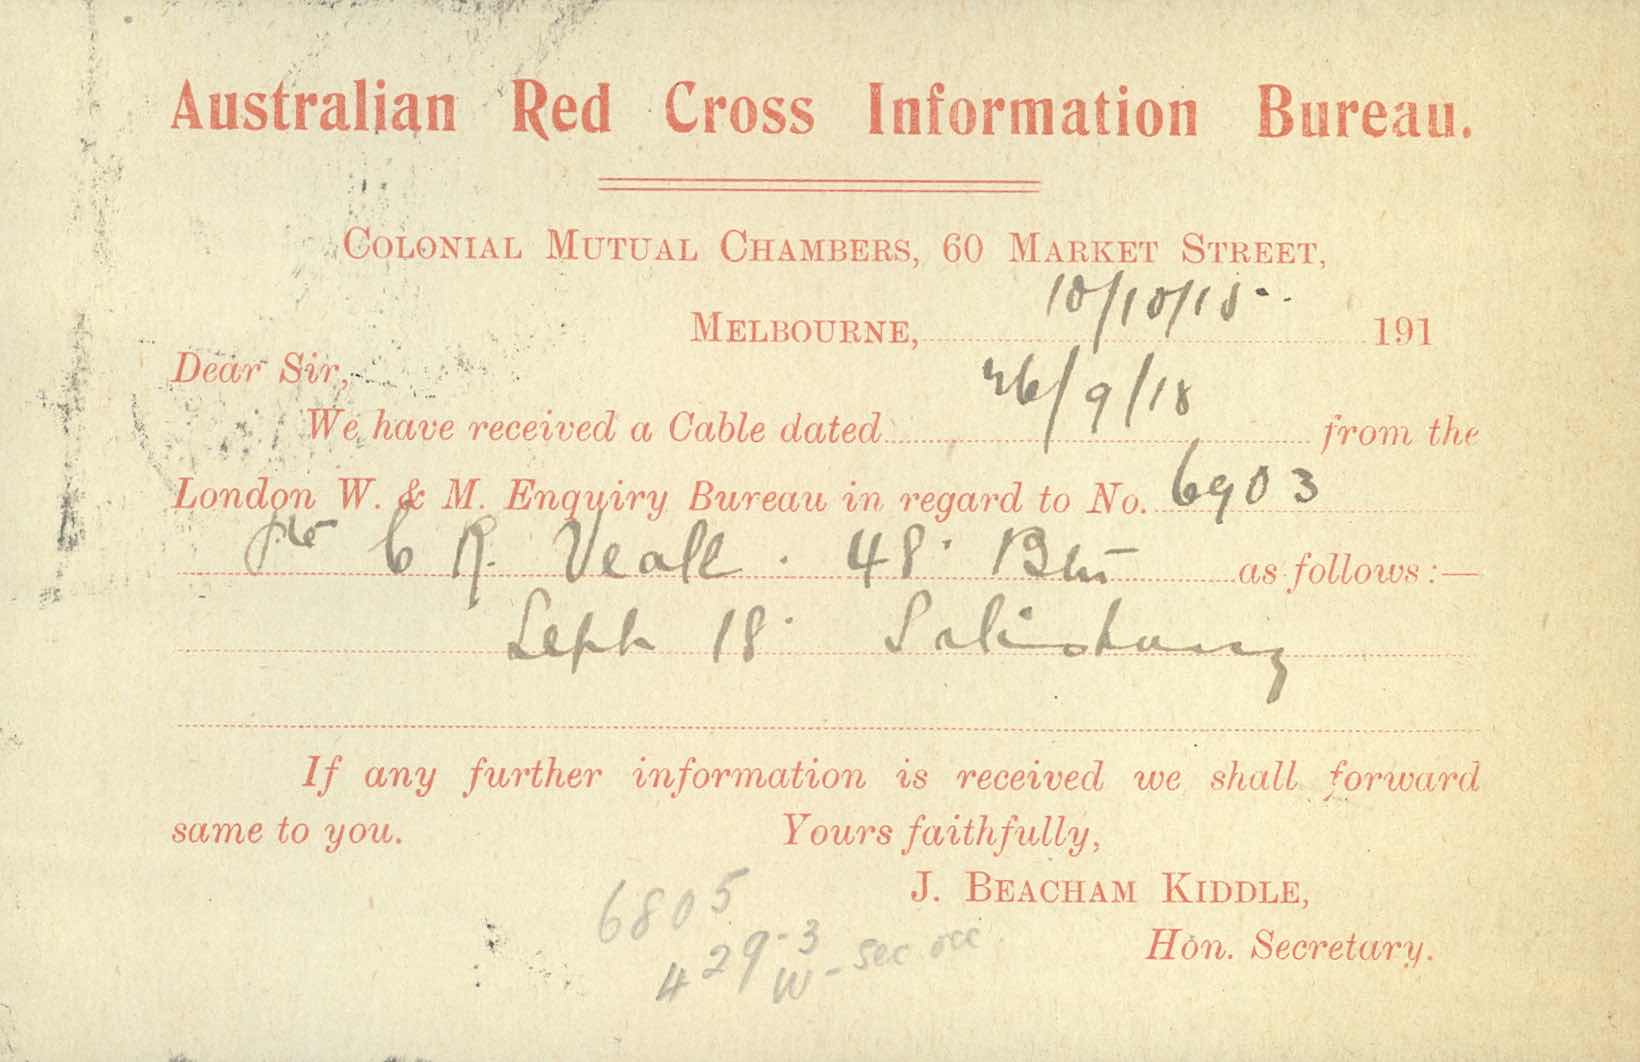 Australian Red Cross Information Bureau.
COLONIAL MUTUAL CHAMBERS, 60 MARKET STREET,
10/10/18
MELBOURNE, 191
Dear Sir,
26/9/18
We have received a Cable dated from the
London W. & M. Enquiry Bureau in regard to No. 6903
Pte C R. Veall . 48. Btn as follows:—
Sept 18. Salisbury
If any further information is received we shall forward
same to you. Yours faithfully,
J. BEACHAM KIDDLE,
Hon. Secretary.
6805
429-3
W - sec occ